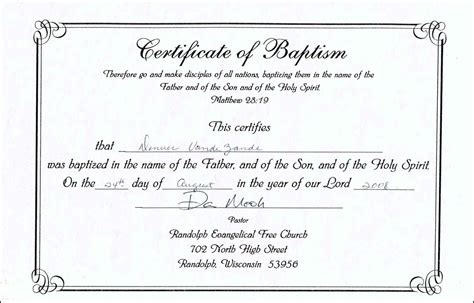 Certificate of Baptism
Therefore go and make disciples of all nations, baptizing them in the name of the
Father and of the Son and of the Holy Spirit.
Matthew 28:19
This certifies
that Vande Zande
was baptized in the name of the Father, and of the Son, and of the Holy Spirit.
On the 24th day of August in the year of our Lord 2008
Pastor
Randolph Evangelical Free Church
702 North High Street
Randolph, Wisconsin 53956